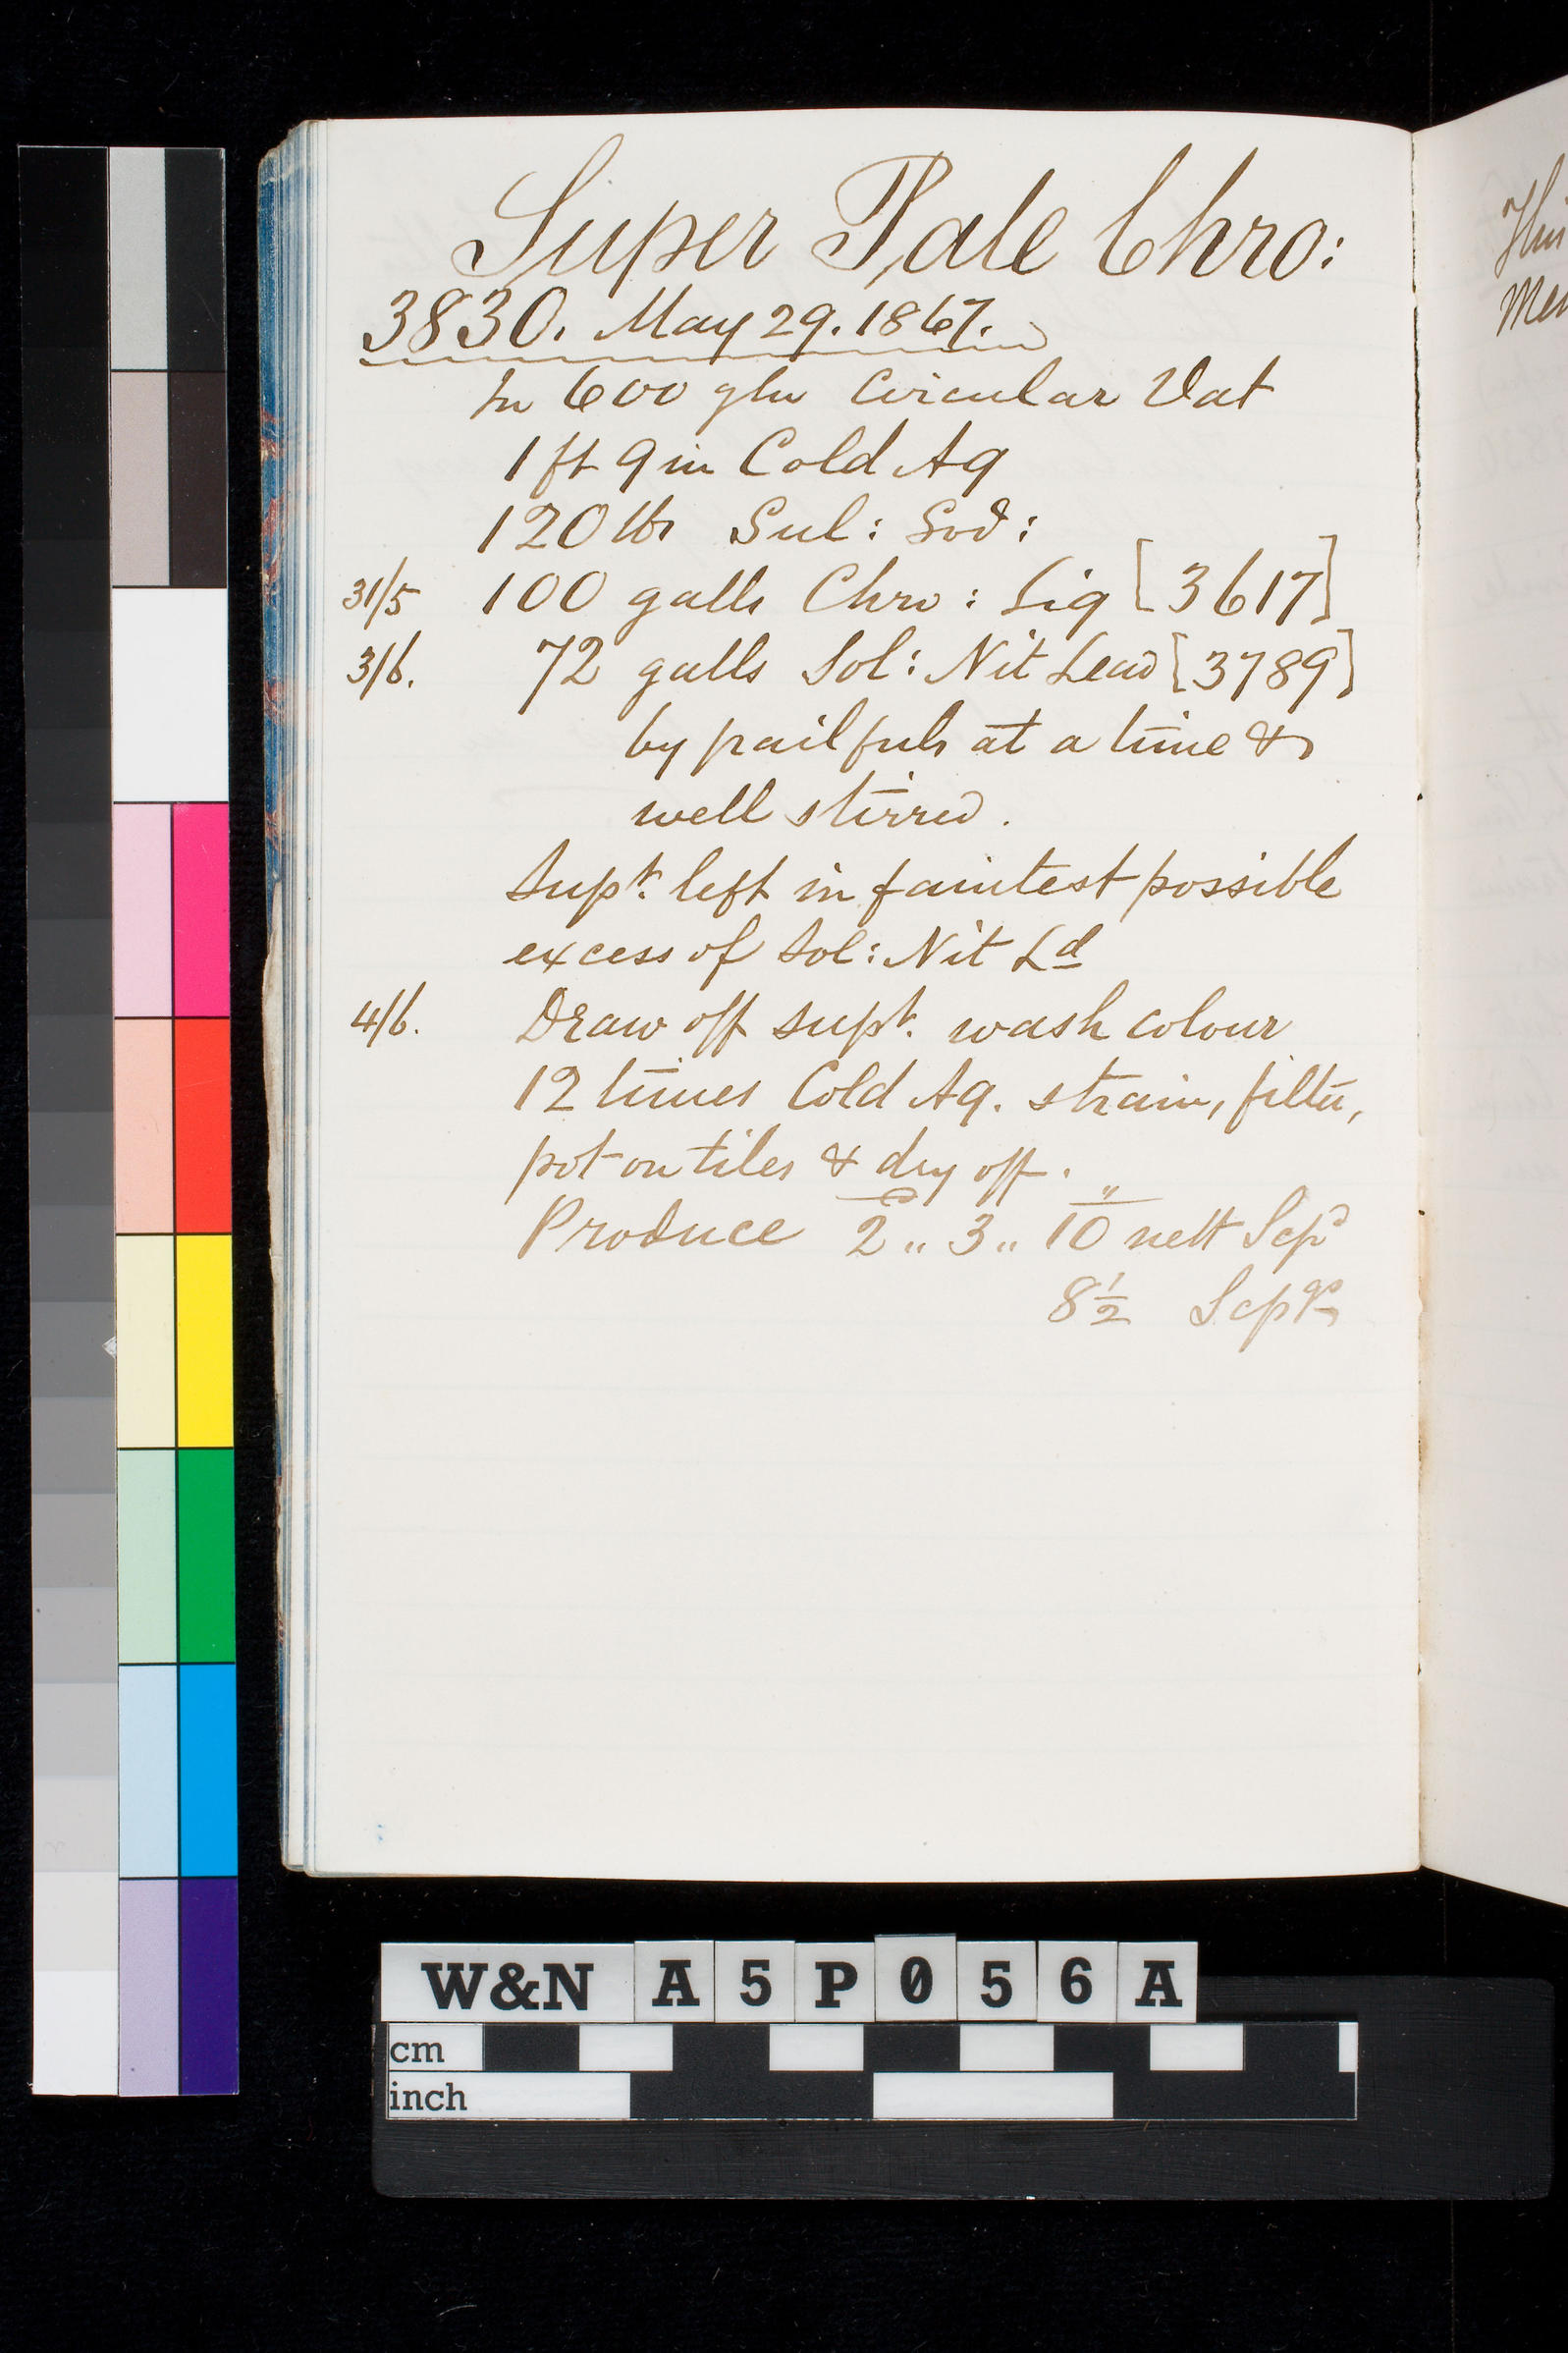 Super Pale Chro:
3830. May 29. 1867.
In 600 gln Circular Vat
1 ft 9 in Cold Aq
120 lbs Sul: Sod:
31/5 100 galls Chro: Liq [3617]
3/6. 72 galls Sol: Nit Lead [3789]
by pailfuls at a time &
well stirred.
Supt. left in faintest possible
excess of Sol: Nit Ld
4/6. Draw off supt. wash colour
12 times Cold Aq. strain, filter,
pot on tiles & dry off.
Produce 2 „ 3 „ 10 nett Scpd
8½ Scpgs
Thi
Mer
W&N A5P056A
cm
inch